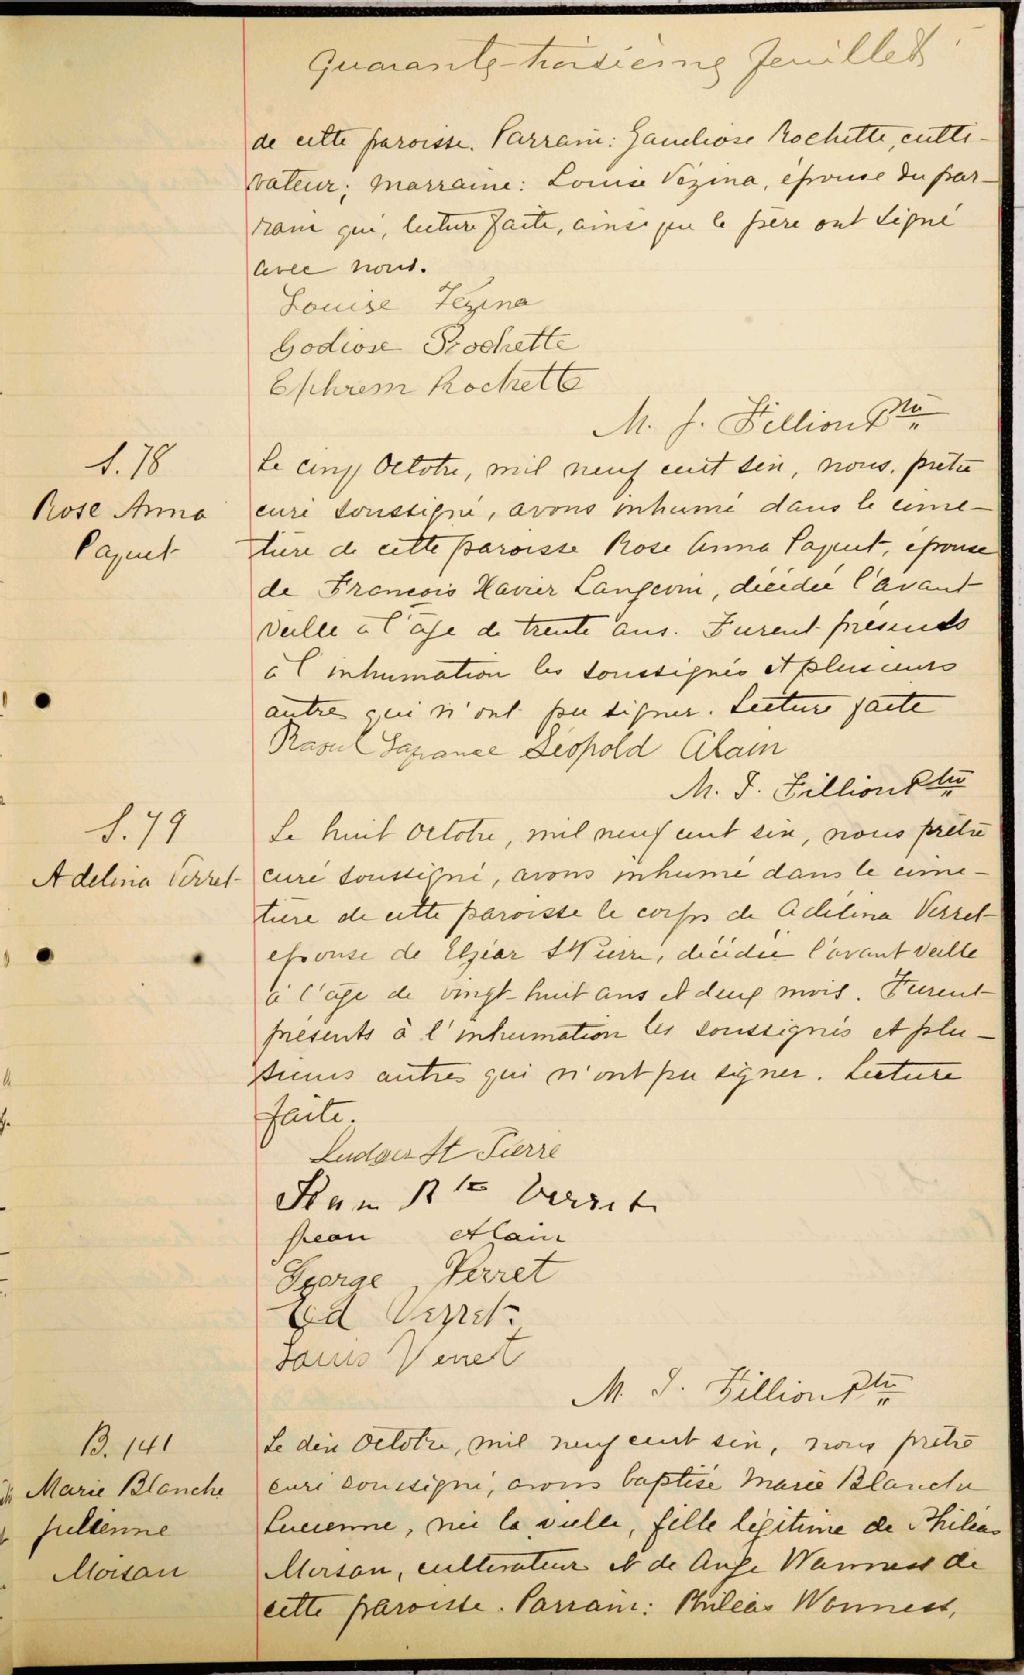 Quarante-troisième feuillet
de cette paroisse. Parrain: Gaudiose Rochette, culti-
vateur; marraine: Louise Vézina, épouse du par-
rain qui, lecture faite, ainsi que le père ont signé
avec nous.
Louise Vezina
Godiose Rochette
Ephrem Rochette
M. J. Fillion Ptre
S. 78
Rose Anna
Paquet
Le cinq Octobre, mil neuf cent six, nous, prêtre
curé soussigné, avons inhumé dans le cime-
tière de cette paroisse Rose Anna Paquet, épouse
de François Xavier Langevin, décédée l'avant
veille à l'âge de trente ans. Furent présents
à l'inhumation les soussignés et plusieurs
autres qui n'ont pu signer. Lecture faite
Raoul Lafrance Léopold Alain
M. J. Fillion Ptre
S. 79
Adelina Verret
Le huit Octobre, mil neuf cent six, nous prêtre
curé soussigné, avons inhumé dans le cime-
tière de cette paroisse le corps de Adélina Verret
épouse de Elzéar St Pierre, décédée l'avant veille
à l'âge de vingt-huit ans et deux mois. Furent
présents à l'inhumation les soussignés et plu-
sieurs autres qui n'ont pu signer. Lecture
faite.
Ludger St Pierre
Jean Bte Verret
Jean Alain
George Verret
Ed Verret
Louis Verret
M. J. Fillion Ptre
B. 141
Marie Blanche
Julienne
Moisan
Le dix Octobre, mil neuf cent six, nous prêtre
curé soussigné, avons baptisé Marie Blanche
Lucienne, née la vielle, fille légitime de Philéas
Moisan, cultivateur et de Ange Wanness de
cette paroisse. Parrain: Philéas Wonness,